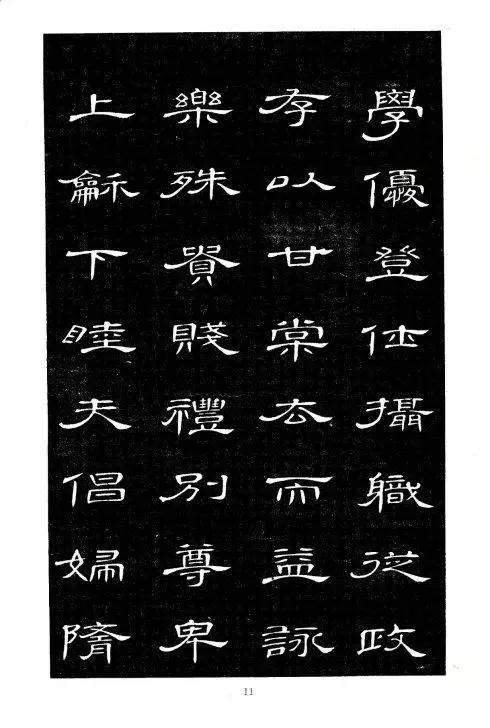 學優登仕攝職從政
存以甘棠去而益詠
樂殊貴賤禮別尊卑
上龢下睦夫倡婦隋
11